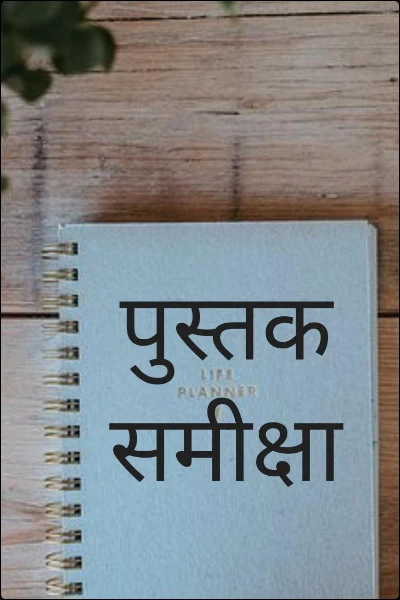 पुस्तक
LIFE
PLANNER
समीक्षा